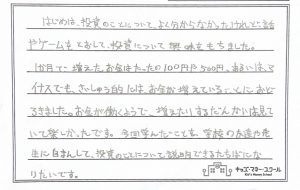 はじめは、投資のことについて、よく分からなかったけれど、話
やゲームをとおして、投資について興味をもちました。
1か月で増えたお金はたったの100円や500円、あるいは、マ
イナスでも、さいしゅう的には、お金が増えていることにおど
ろきました。お金が働くようで、増えたりするだんかい
いて楽しかったです。今回学んだことを、学校の友達や先
生に自まんして、投資のことについて説明できるたちばにな
りたいです。
キッズ・マネー・スクール
Kid's Money School